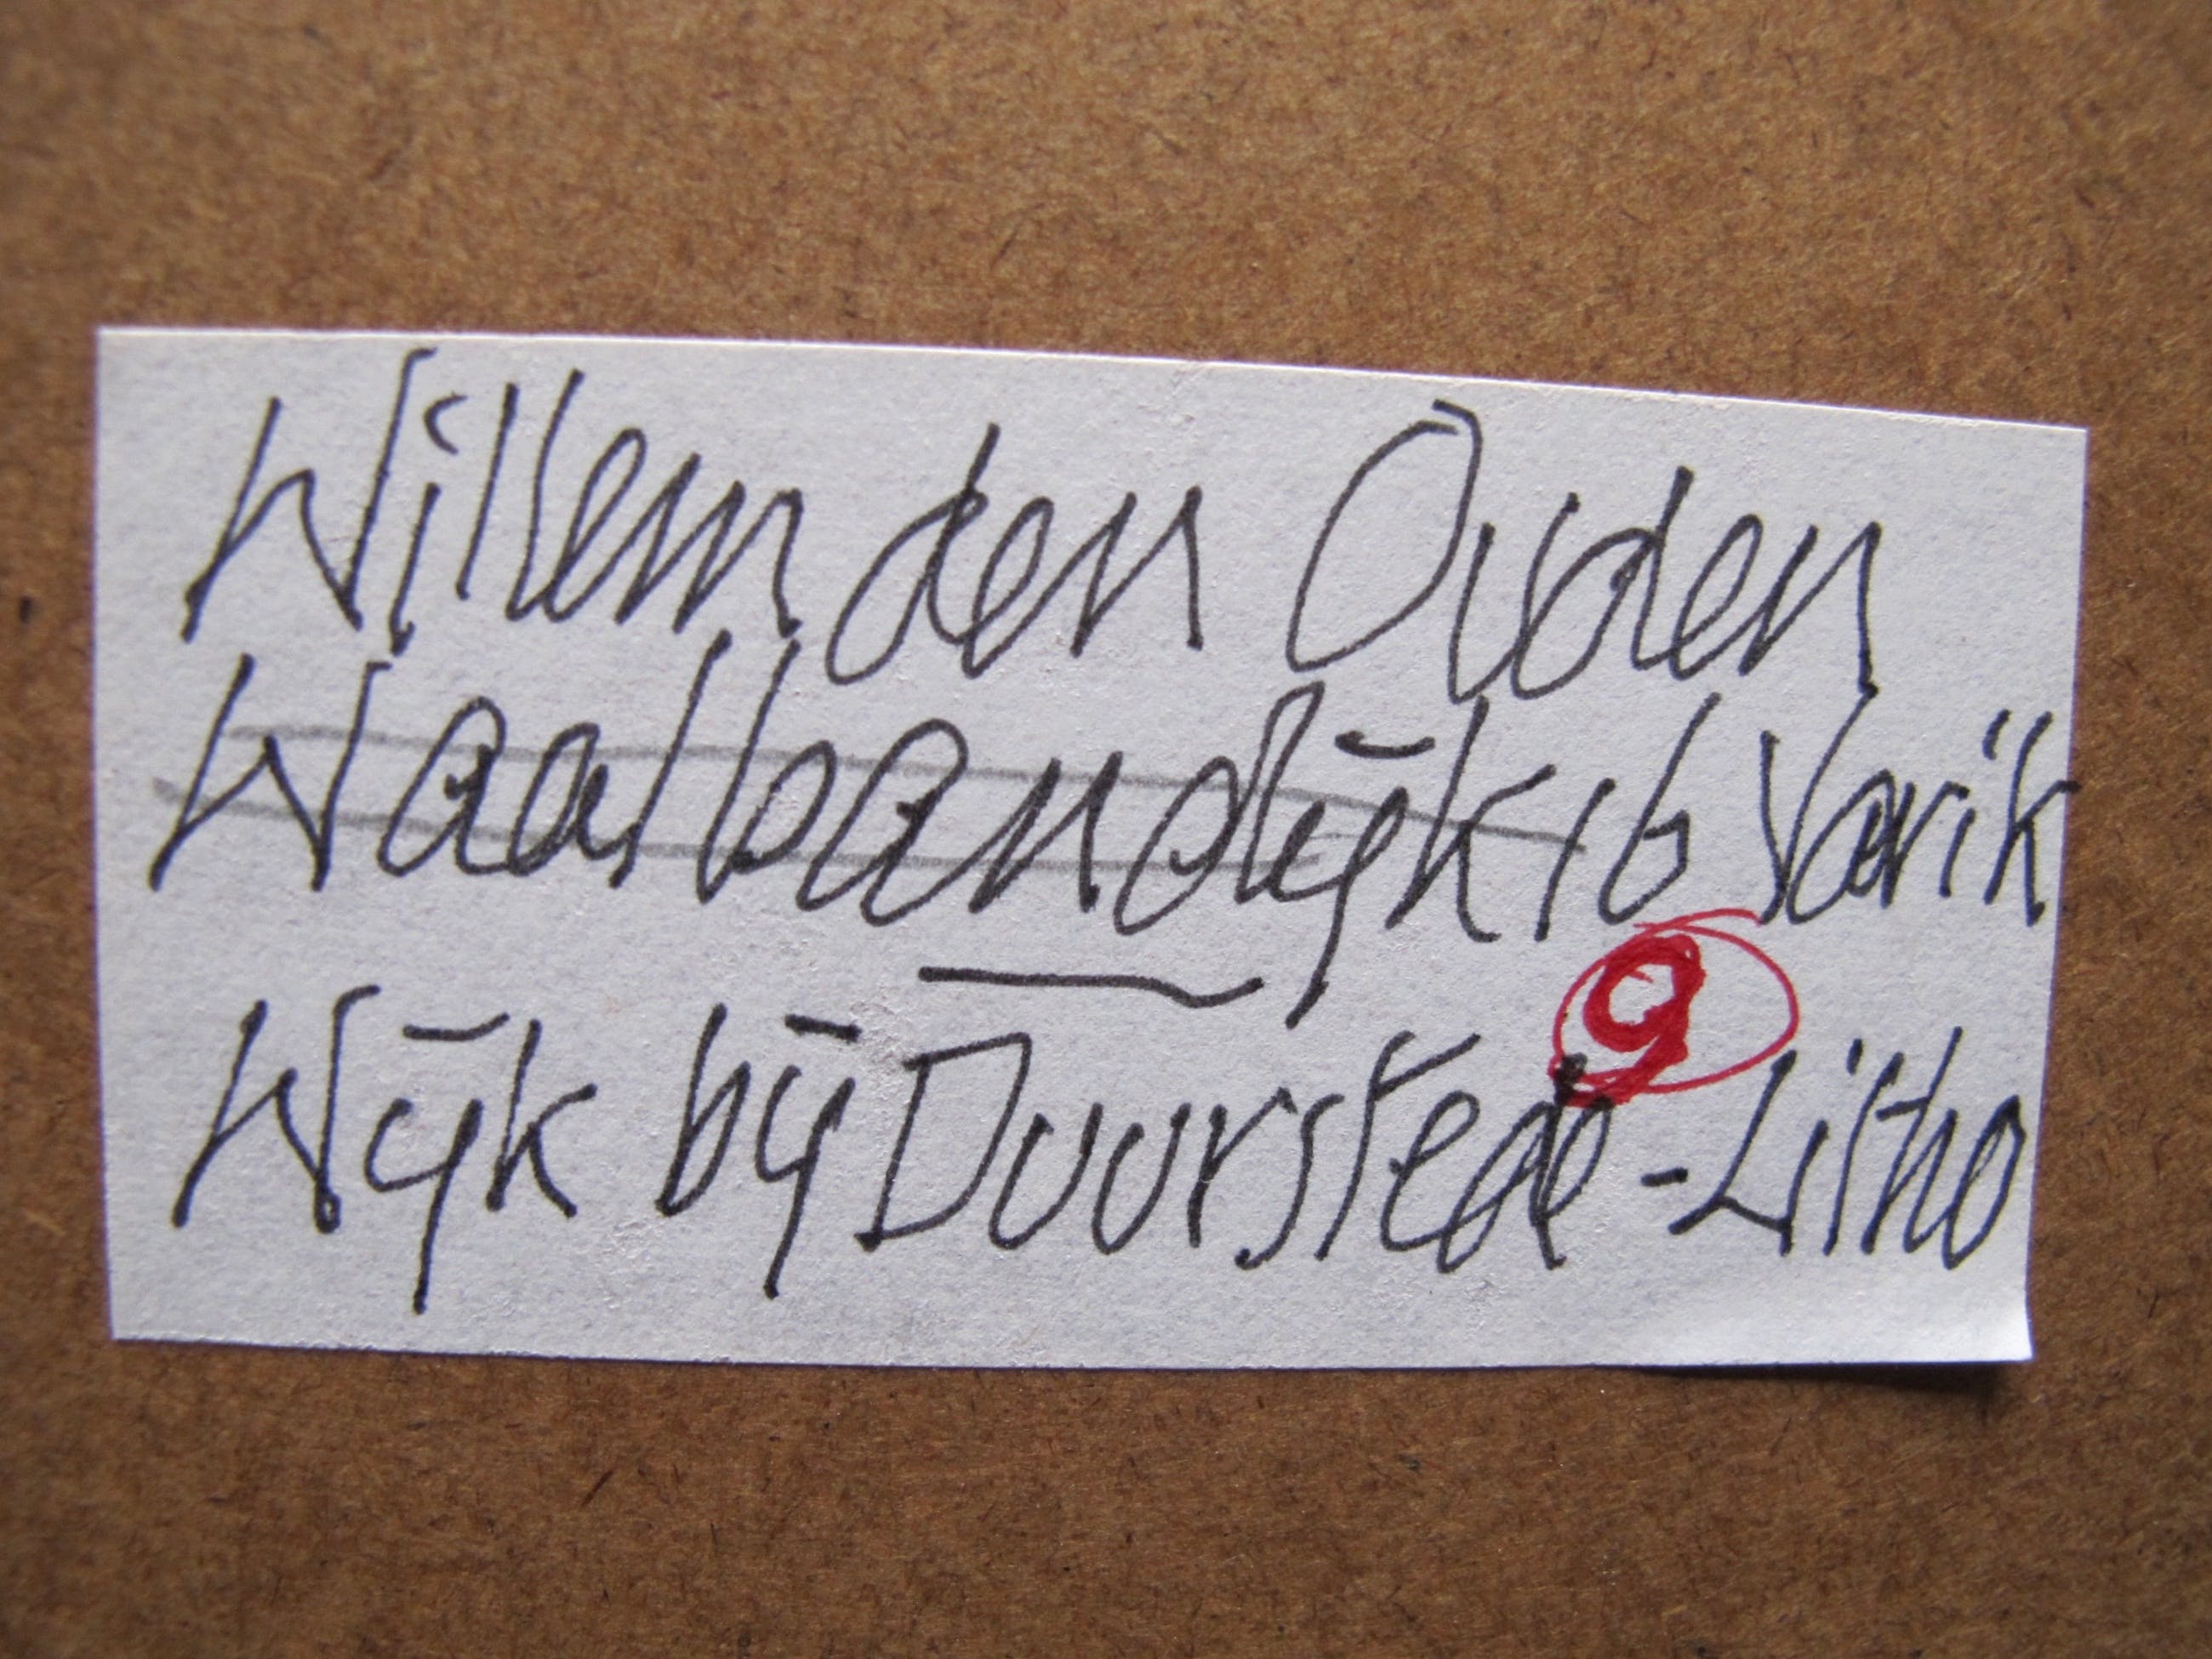 Willem den Ouden
Waalbandijk 16 Varik
9
Wijk bij Duurstede - Litho